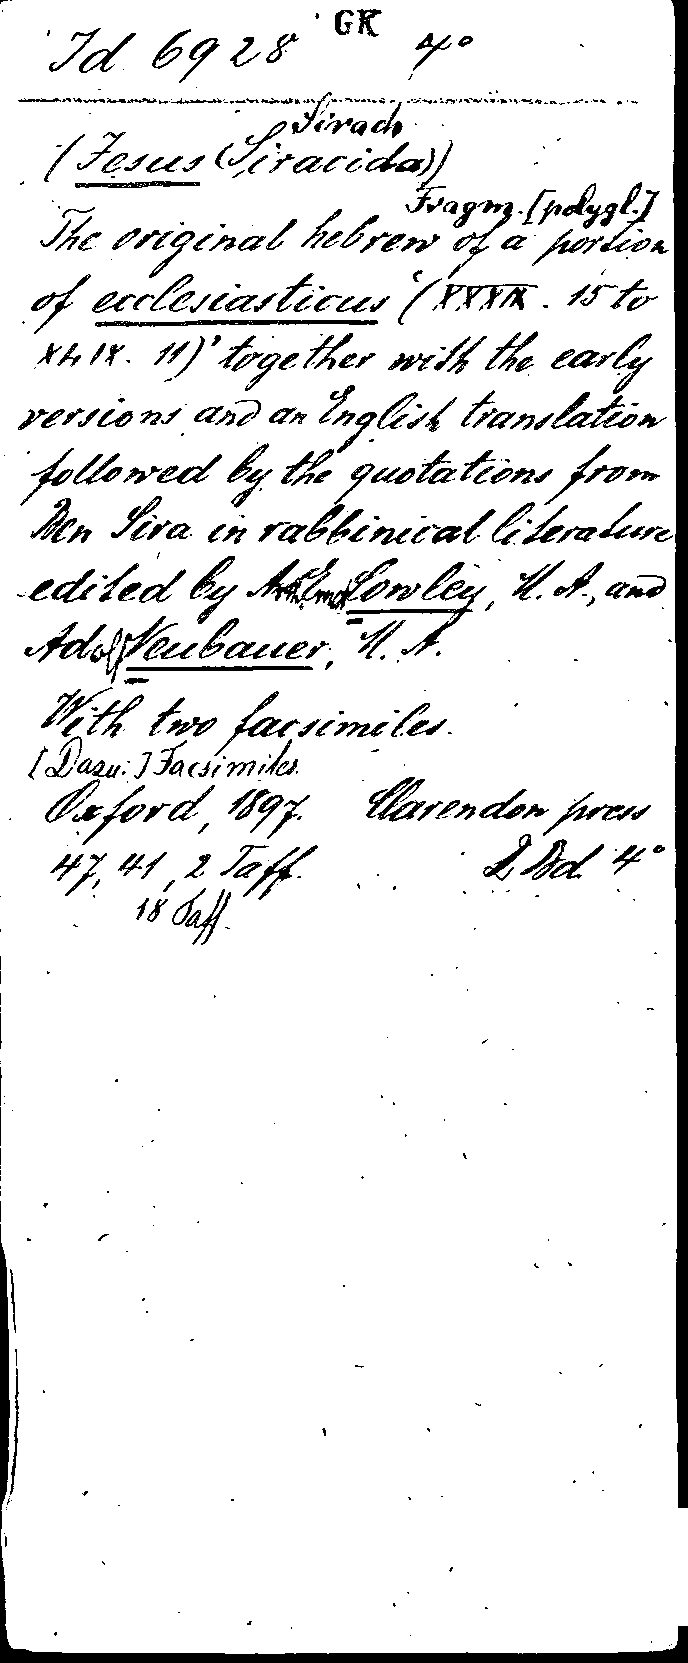 GK
Id 6928 4°
Sirach
(Jesus (Siracida))
Fragm. [polygl.]
The original hebrew of a portion
of ecclesiasticus (XXXIX. 15 to
XLIX. 11) together with the early
versions and an English translation
followed by the quotations from
Ben Sira in rabbinical literature
edited by Cowley, M. A., and
Adolf Neubauer, M. A.
With two facsimiles.
[Dazu:] Facsimiles.
Oxford, 1897. Clarendon press
47, 41, 2 Taff. 2 Bd. 4°
18 Taff.